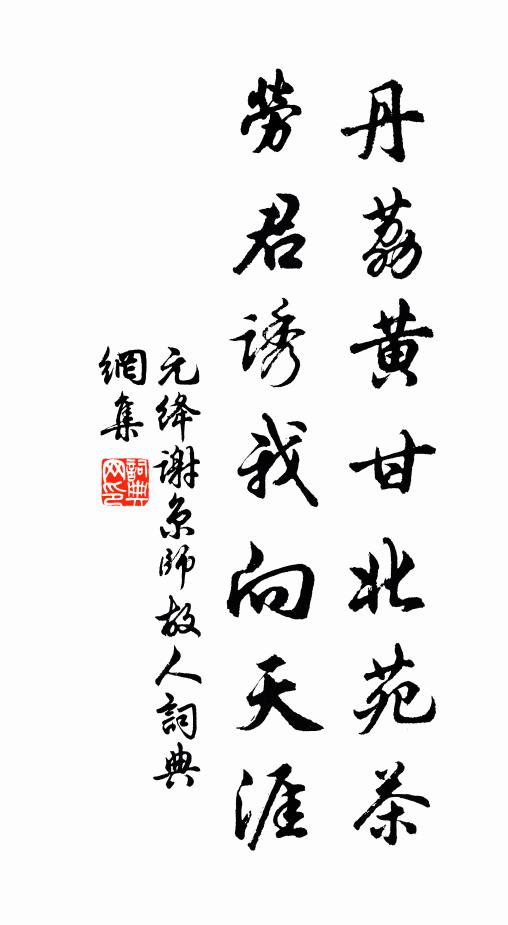 丹荔黄甘北苑茶
勞君誘我向天涯
元绛謝京師故人詞典
網集
詞典網印